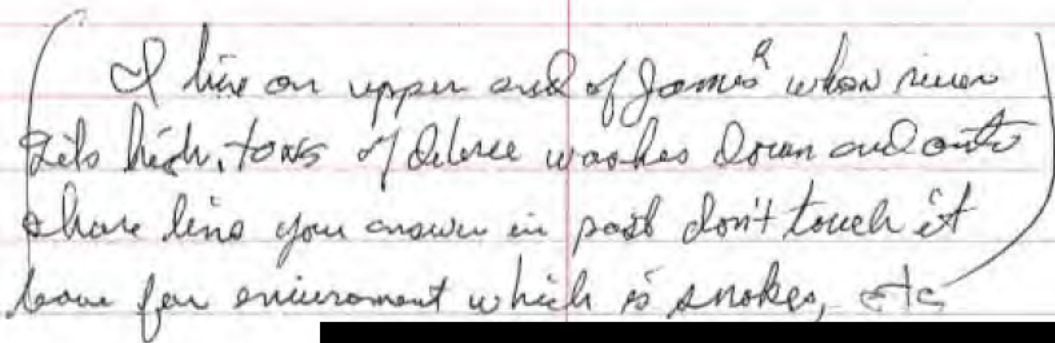 ( I live on upper end of James R when river )
gets high, tons of debree washes down and onto
shore line your answer in past don't touch it
leave for enviroment which is snakes, etc